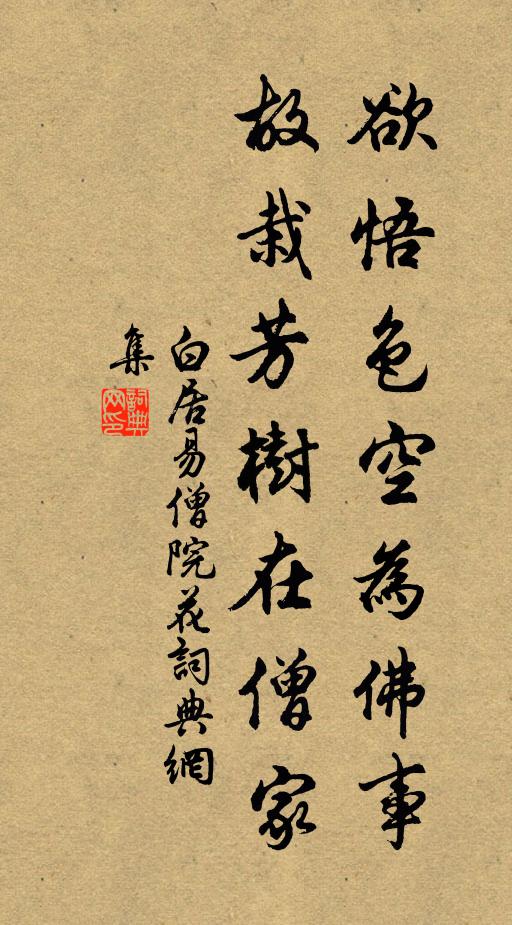 欲悟色空為佛事
故栽芳樹在僧家
白居易僧院花詞典網
集
詞典网印